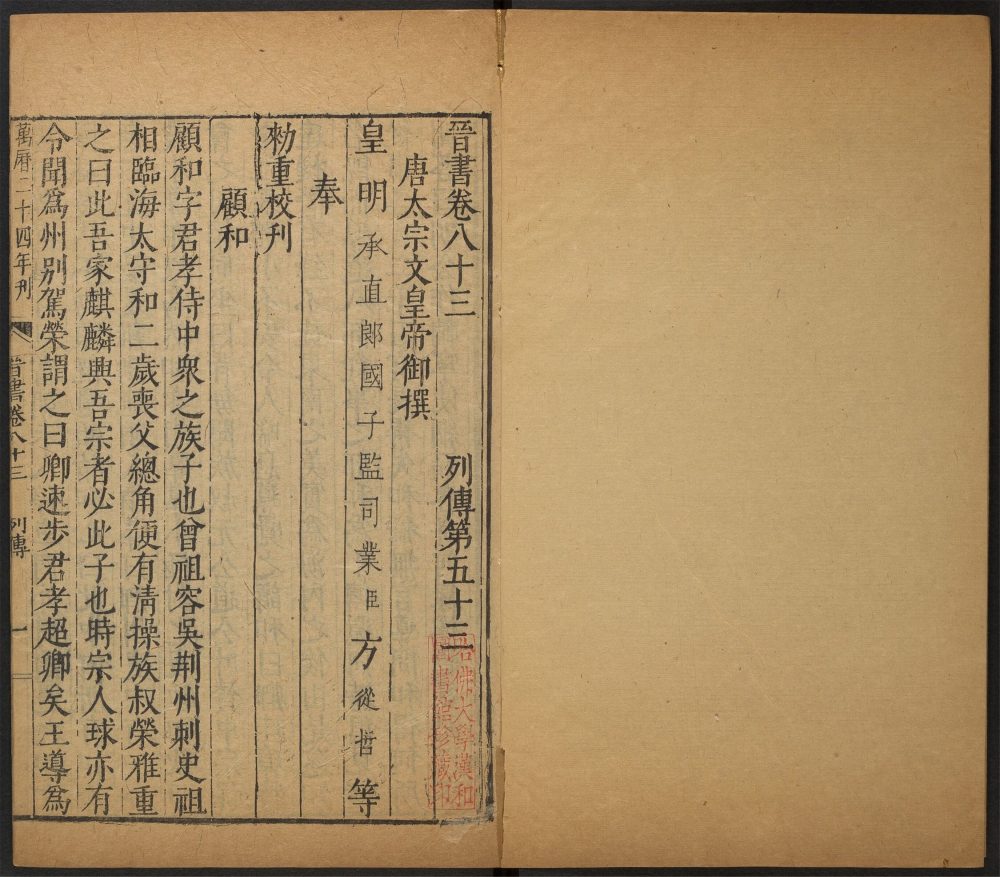 晉書卷八十三 列傳第五十三
唐太宗文皇帝御撰
皇明承直郎國子監司業臣方從哲等
奉
勑重校刊
顧和
顧和字君孝侍中衆之族子也曾祖容吳荆州刺史祖
相臨海太守和二歲喪父總角便有清操族叔榮雅重
之曰此吾家麒麟興吾宗者必此子也時宗人球亦有
令聞爲州别駕榮謂之曰卿速步君孝超卿矣王導爲
萬曆二十四年刊 晉書卷八十三 列傳 一
哈佛大學漢和
圖書館珍藏印